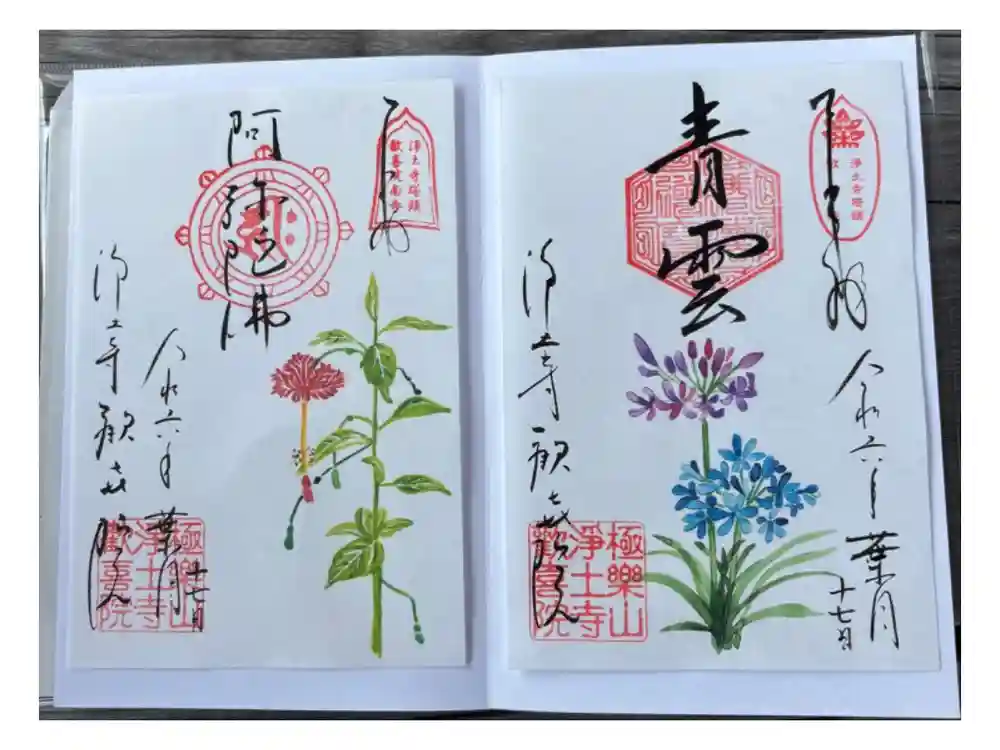 阿弥陀佛
浄土寺塔頭
歓喜院南寺
浄土寺歓喜院
令和六年
葉月
十七日
極樂山
淨土寺
歡喜院
青雲
浄土寺塔頭
浄土寺歓喜院
令和六年
葉月
十七日
極樂山
淨土寺
歡喜院